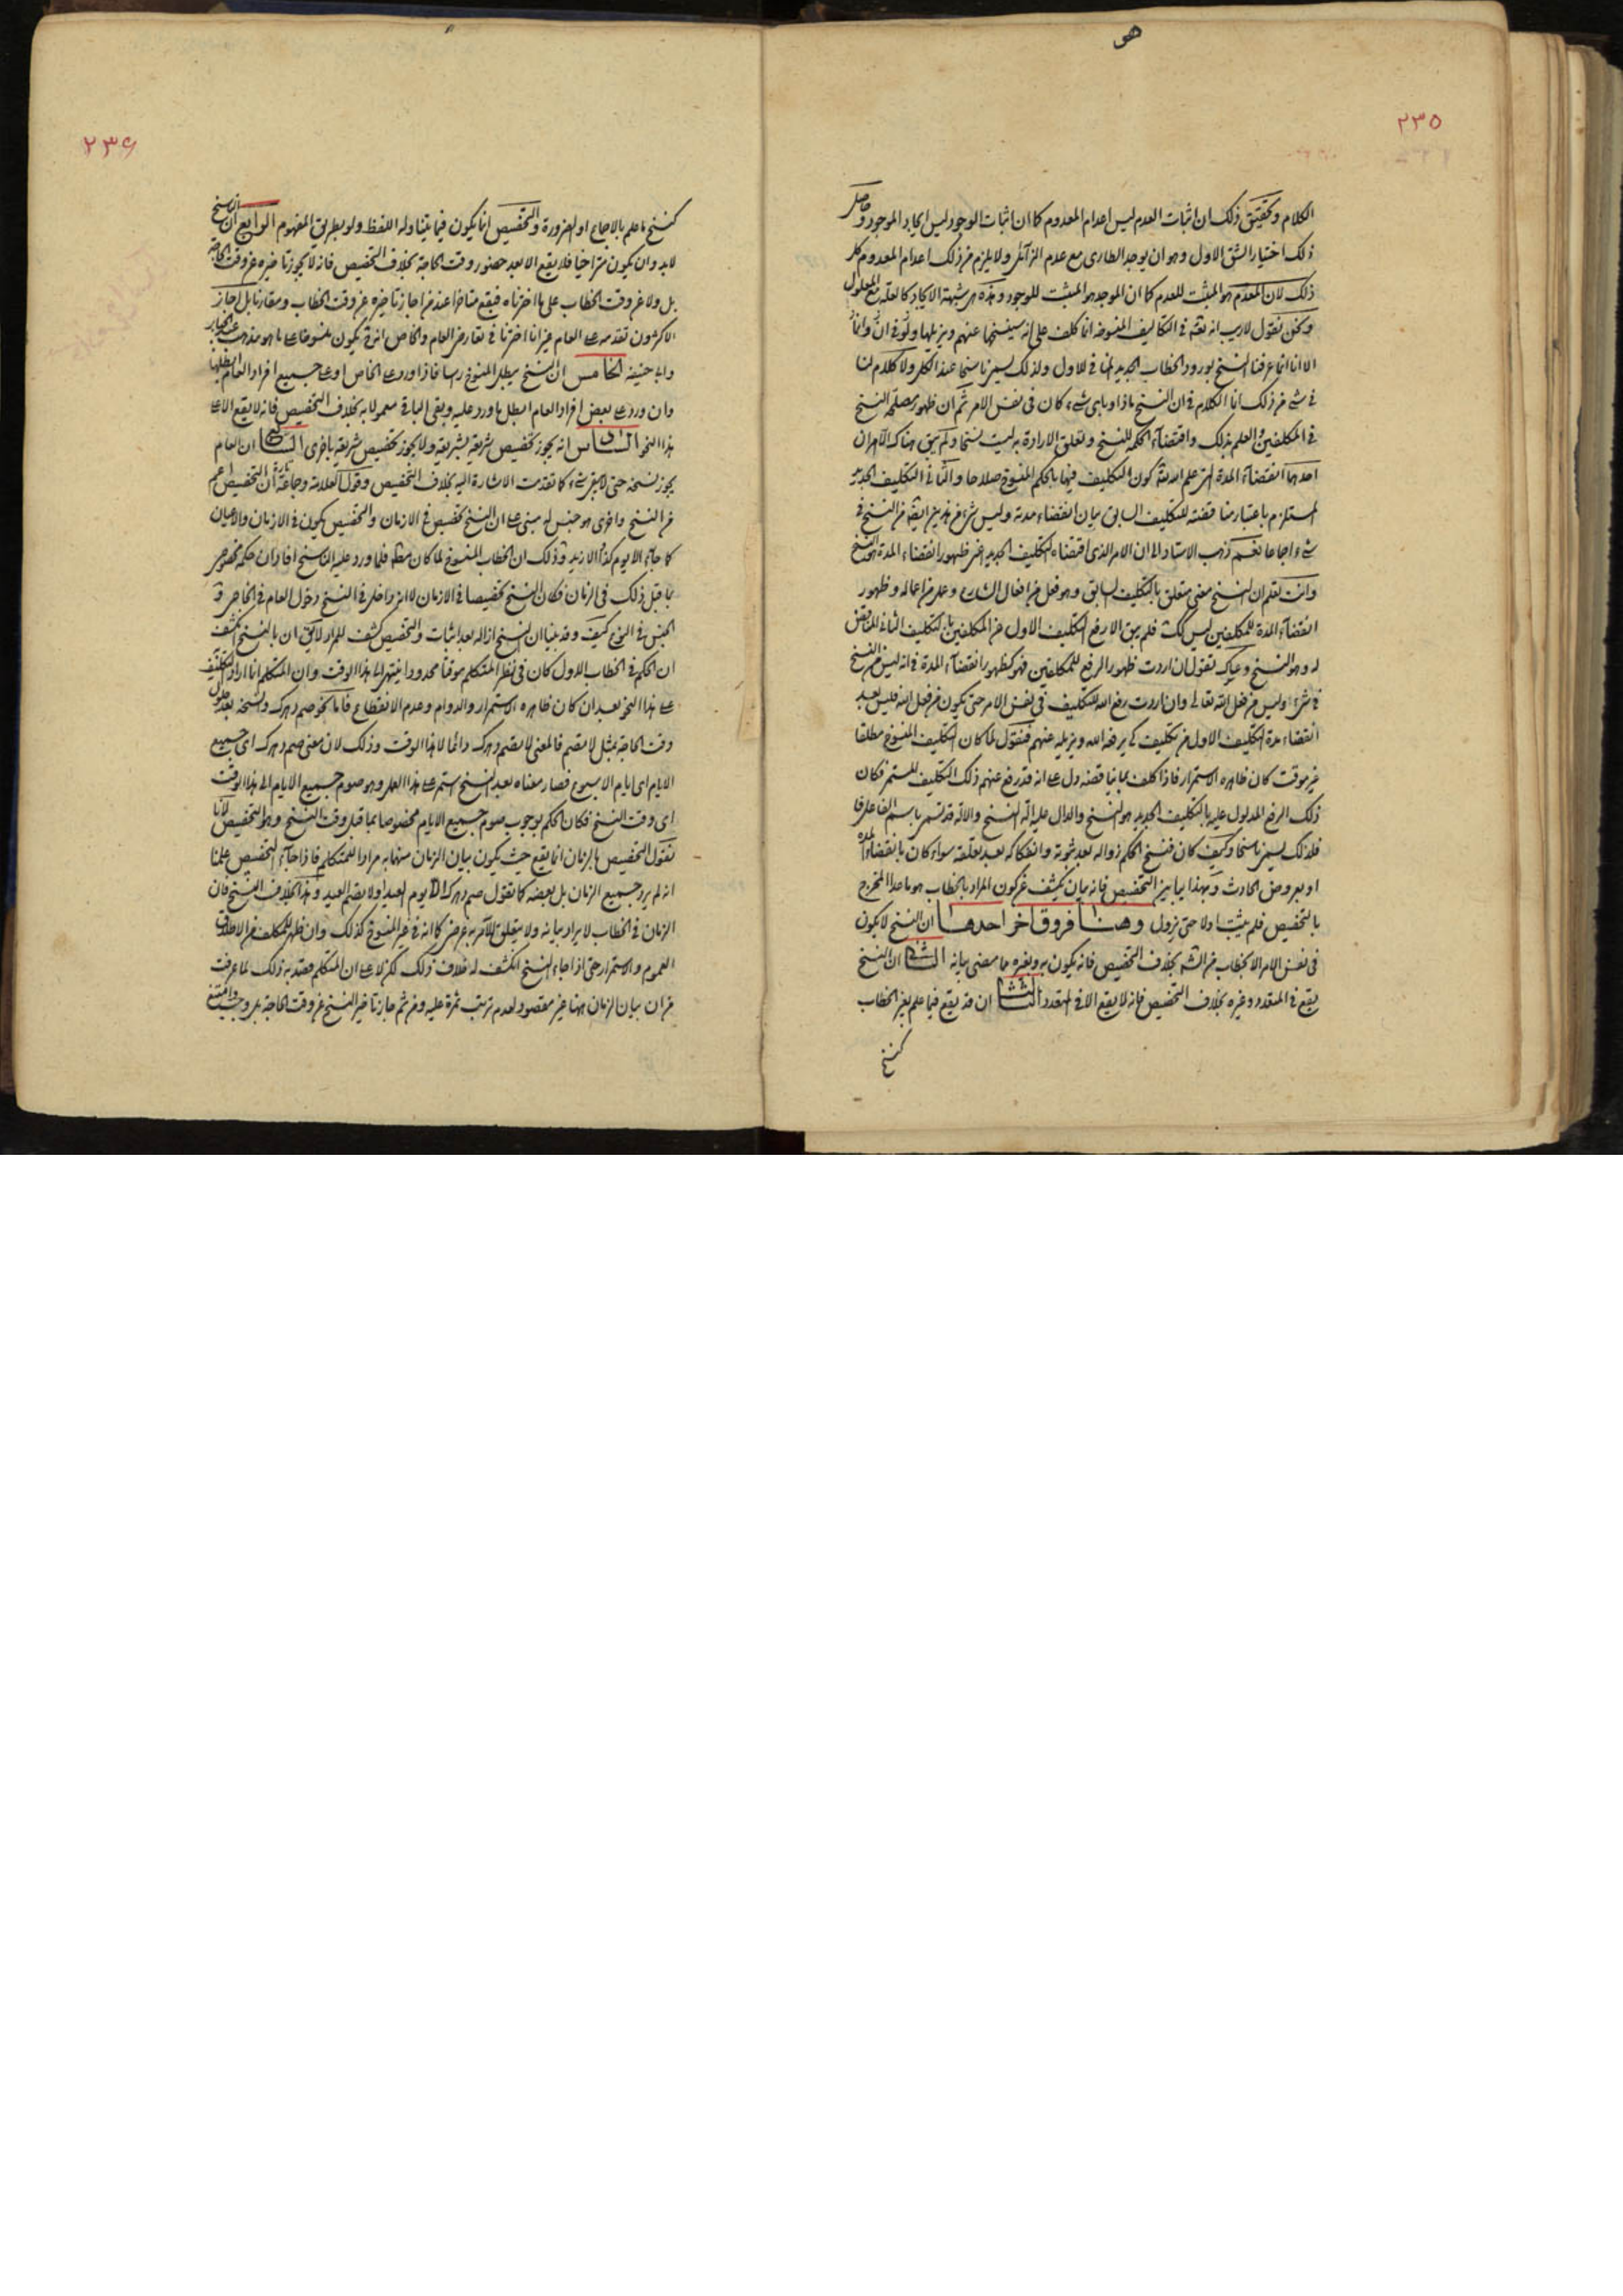 هو
٢٣٥
الكلام وتحقيق ذلك ان اثبات العدم ليس اعدام المعدوم كما ان اثبات الوجود ليس ايجاد الموجود وحاصل
ذلك اختيار الشق الاول وهو ان يوجد الطارى مع عدم الزائل ولا يلزم من ذلك اعدام المعدوم كل
ذلك لان المعدم هو المثبت للعدم كما ان الموجد هو المثبت للوجود وهذه هى شبهة الايجاد كالعلة مع المعلول
ونحن نقول لا ريب انه تعالى فى التكاليف المنسوخة انما كلف على انه سينسخها عنهم ويزيلها
الا انا انما عرفنا النسخ بورود الخطاب الجديد المنافى للاول ولذلك يسمى ناسخا عند الكل ولا كلام لنا
فى شىء من ذلك انما الكلام فى ان النسخ ماذا وباى شىء كان فى نفس الامر ثم ان ظهور مصلحة النسخ
فى المكلفين والعلم بذلك واقتضاء الحكمة للنسخ وتعلق الارادة به ليست نسخا ولم يبق هناك الا امران
احدهما انقضاء المدة التى علم الله كون التكليف فيها بالحكم المنسوخ صلاحا والثانى التكليف الجديد
المستلزم باعتبار مناقضته للتكليف السابق بيان انقضاء مدته وليس شىء من هذين ايضا من النسخ فى
شىء اجماعا نعم ذهب الاستاد الى ان الامر الذى اقتضاه التكليف الجديد اعنى ظهور انقضاء المدة هو النسخ
وانت تعلم ان النسخ معنى متعلق بالتكليف السابق وهو فعل من افعال الشارع وعمل من اعماله وظهور
انقضاء المدة للمكلفين ليس كك فلم يبق الا رفع التكليف الاول عن المكلفين بالتكليف الثانى المناقض
له وهو النسخ وعساك تقول ان اردت ظهور الرفع للمكلفين فهو كظهور انقضاء المدة فى انه ليس من النسخ
فى شىء وليس من فعل الله تعالى وان اردت رفع الله للتكليف فى نفس الامر حتى يكون من فعل الله فليس بعد
انقضاء مدة التكليف الاول من تكليف كى يرفعه الله ويزيله عنهم فنقول لما كان التكليف المنسوخ مطلقا
غير موقت كان ظاهره الاستمرار فاذا كلف بما يناقضه دل على انه قد رفع عنهم ذلك التكليف المستمر فكان
ذلك الرفع المدلول عليه بالتكليف الجديد هو النسخ والدال عليه آلة النسخ والآلة قد تسمى باسم الفاعل
فلذلك يسمى ناسخا وكيف كان فنسخ الحكم زواله بعد ثبوته وانفكاكه بعد تعلقه سواء كان بانقضاء المدة
او بعروض الحادث وبهذا يباين التخصيص فانه بيان يكشف عن كون المراد بالخطاب هو ما عدا المخرج
بالتخصيص فلم يثبت اولا حتى يزول وهنا فروق اخر احدها ان النسخ لا يكون
فى نفس الامر الا بخطاب من الشرع بخلاف التخصيص فانه يكون به وبغيره مما مضى بيانه الثانى ان النسخ
يقع فى المتعدد وغيره بخلاف التخصيص فانه لا يقع الا فى المتعدد الثالث ان قد يقع فيما علم بغير الخطاب
كنسخ
٢٣٦
كنسخ ما علم بالاجماع او الضرورة والتخصيص انما يكون فيما يتناوله اللفظ ولو بطريق المفهوم الرابع ان الناسخ
لابد وان يكون متراخيا فلا يقع الا بعد حضور وقت الحاجة بخلاف التخصيص فانه لا يجوز تاخيره عن وقت الحاجة
بل ولا عن وقت الخطاب على ما اخترناه فيقع متاخرا عند من اجاز تاخيره عن وقت الخطاب ومقارنا بل اجاز
الاكثرون تقدمه على العام غير انا اخترنا فى تعارض العام والخاص انه يكون منسوخا على ما هو مذهب
وابى حنيفة الخامس ان النسخ يبطل المنسوخ راسا فاذا ورد على الخاص او على جميع افراد العام ابطلها
وان ورد على بعض افراد العام ابطل ما ورد عليه وبقى الباقى معمولا به بخلاف التخصيص فانه لا يقع الا على
هذا النحو السادس انه يجوز تخصيص شريعة بشريعة ولا يجوز تخصيص شريعة باخرى السابع ان العام
يجوز نسخه حتى لا يبقى شىء كما تقدمت الاشارة اليه بخلاف التخصيص وقول العلامة وجماعة تارة ان التخصيص اعم
من النسخ واخرى هو جنس له مبنى على ان النسخ تخصيص فى الازمان والتخصيص يكون فى الازمان والاعيان
كما جائز الا يوم كذا والا زيد وذلك ان الخطاب المنسوخ لما كان مطلقا فلما ورد عليه الناسخ افاد ان حكمه مخصوص
بما قبل ذلك فى الزمان فكان النسخ تخصيصا فى الازمان لا انه داخل فى النسخ دخول العام فى الخاص
الجنس فى النوع كيف وقد بينا ان النسخ ازالة بعد اثبات والتخصيص كشف للمراد لا يقال ان بالنسخ انكشف
ان الحكم فى الخطاب الاول كان فى نظر المتكلم موقتا محدودا ينتهى الى هذا الوقت وان المتكلم انما اراد التكليف
على هذا النحو بعد ان كان ظاهره الاستمرار والدوام وعدم الانقطاع فاما نحو صم دهرك ونسخه بعد دخول
وقت الحاجة بمثل لا تصم فالمعنى لا تصم دهرك دائما الا هذا الوقت وذلك لان معنى صم دهرك اى جميع
الايام اى ايام الاسبوع فصار معناه بعد النسخ استمر على هذا العمل وهو صوم جميع الايام الى هذا الوقت
اى وقت النسخ فكان الحكم بوجوب صوم جميع الايام مخصوصا بما قبل وقت النسخ وهو التخصيص لانا
نقول التخصيص بالزمان انما يقع حيث يكون بيان الزمان منهما به مرادا للمتكلم فاذا جاء التخصيص علمنا
انه لم يرد جميع الزمان بل بعضه كما تقول صم دهرك الا يوم العيد او لا تصم العيد وهذا بخلاف النسخ فان
الزمان فى الخطاب لا يراد بيانه ولا يتعلق للآمر به غرض كما انه فى غير المنسوخ كذلك وان ظهر للمكلف من الاطلاق
العموم والاستمرار حتى اذا جاء النسخ انكشف له خلاف ذلك لكن لا على ان المتكلم قصد به ذلك لما عرفت
من ان بيان الزمان ههنا غير مقصود لعدم ترتب ثمرة عليه ومن ثم جاز تاخير النسخ عن وقت الحاجة بل وجب وامتنع